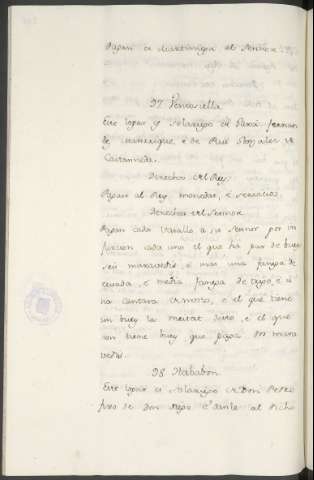 Pagan de Martiniega al Sennor
37 Ventosiella
Este logar es Solariego de Garci Fernan
dez Manrrique, e de Rui Gonzales de
Castanneda.
Derechos del Rey
Pagan al Rey monedas, e servicios.
Derechos del Sennor
Pagan cada Vasallo a su Sennor por in
furcion cada uno el que ha par de buey
seis maravedis, e mas una fanega de
cevada, e media fanega de trigo, e u
na cantara de mosto, e el que tiene
un buey la meitat desto, e el que
non tiene buey que pague dos mara
vedis.
38 Nababon
Este logar es Solariego de Don Pedro
fijo de Don Diego, e dicho